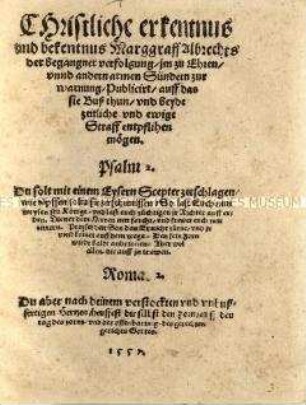 CHristliche erkentnus
vnd bekentnus Marggraff Albrechts
der begangner verfolgung / jm zu Ehren /
vnnd andern armen Sündern zur
warnung / Publicirt / auff das
sie Buß thun / vnd beyde
zeitliche vnd ewige
Straff entpflihen
mögen.
Psalm 2.
Du solt mit einem Eysern Scepter zerschlagen /
wie töpffen soltu sie zerschmeissen / So last Euch nun
weysen jhr Könge / vnd last euch züchtigen jr Richter auff er
den. Dienet dem Herrn mit forcht / vnd frewet euch mit
zittern. Küsset den Son das er nicht zürne / vnd jr
vmb kommet auff dem wege. Den sein zorn
wirdt baldt anbrennen. Aber wol
allen, die auff jn trawen.
Roma. 2.
Du aber nach deinem verstockten vnd vnbuß-
fertigen Hertzen / heuffest dir selbst den zorn auff den
tag des zorns vnd der offenbarung des gerechten
gerichts Gottes.
1557.